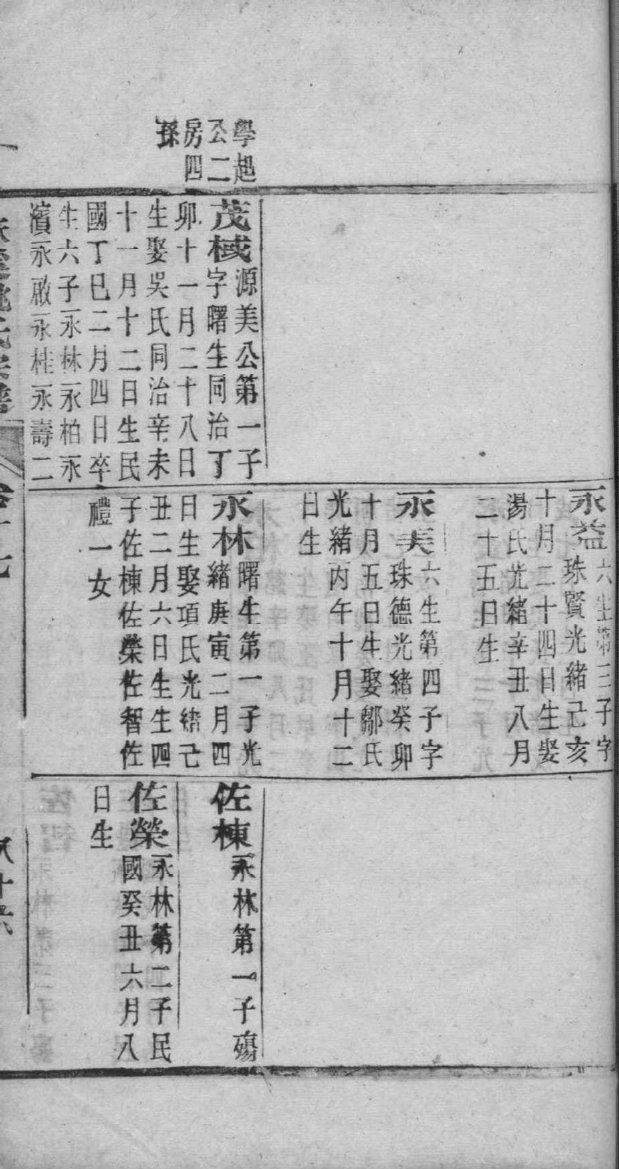 學起
公二
房四
孫
茂棫源美公第一子
字曙生同治丁
卯十一月二十八日
生娶吳氏同治辛未
十一月十二日生民
國丁巳二月四日卒
生六子永林永柏永
濱永啟永桂永壽二
永益六生第三子字
珠賢光緒己亥
十月二十四日生娶
湯氏光緒辛丑八月
二十五日生
永美六生第四子字
珠德光緒癸卯
十月五日生娶鄒氏
光緒丙午十月十二
日生
永林曙生第一子光
緒庚寅二月四
日生娶項氏光緒己
丑二月六日生生四
子佐棟佐榮佐智佐
禮一女
佐棟永林第一子殤
佐榮永林第二子民
國癸丑六月八
日生
八十六